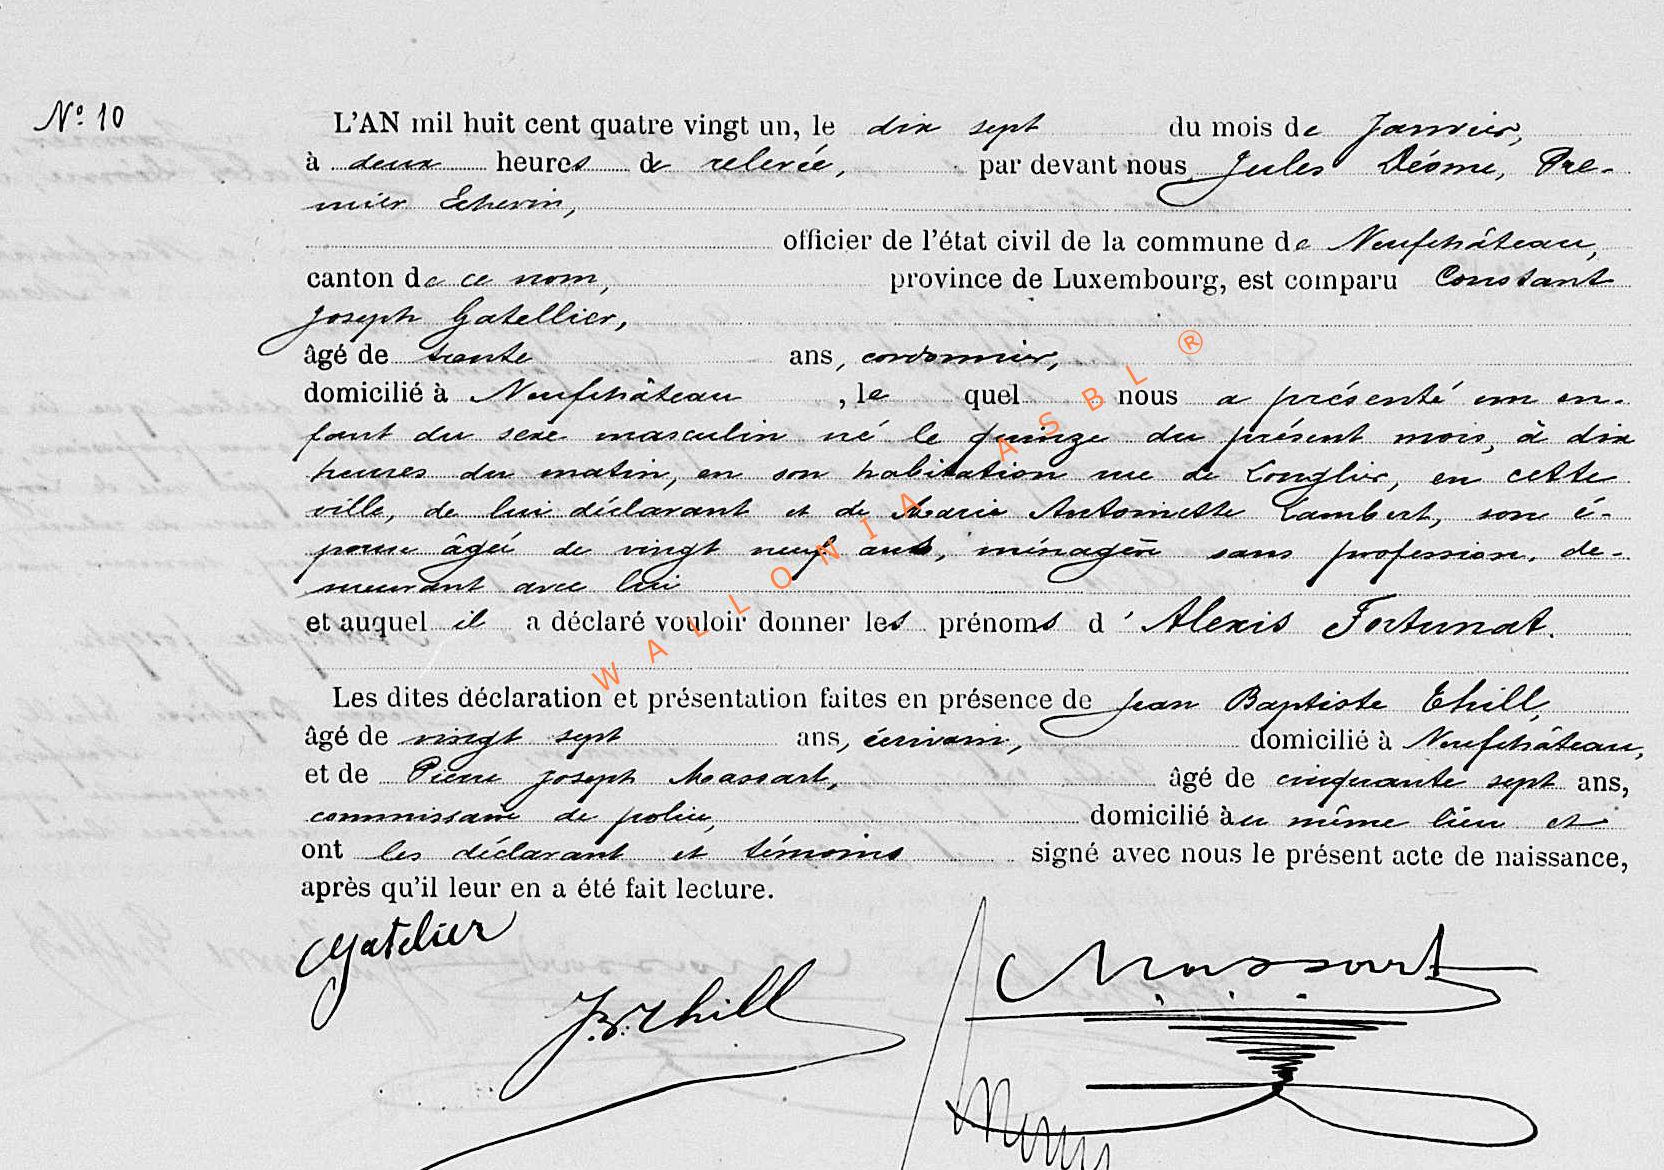 N° 10
L'AN mil huit cent quatre vingt un, le dix sept du mois de Janvier,
à deux heures de relevée, par devant nous Jules Déome, Pre-
mier Echevin,
officier de l'état civil de la commune de Neufchâteau,
canton de ce nom, province de Luxembourg, est comparu Constant
Joseph Gatellier,
âgé de trente ans, cordonnier,
domicilié à Neufchâteau, le quel nous a présenté un en-
fant du sexe masculin né le quinze du présent mois, à dix
heures du matin, en son habitation rue de Longlier, en cette
ville, de lui déclarant et de Marie Antoinette Lambert, son é-
pouse âgée de vingt neuf ans, ménagère sans profession, de-
meurant avec lui
et auquel il a déclaré vouloir donner les prénoms d'Alexis Fortunat.
Les dites déclaration et présentation faites en présence de Jean Baptiste Thill,
âgé de vingt sept ans, écrivain, domicilié à Neufchâteau,
et de Pierre Joseph Massart, âgé de cinquante sept ans,
commissaire de police, domicilié àu même lieu et
ont les déclarant et témoins signé avec nous le présent acte de naissance,
après qu'il leur en a été fait lecture.
Gatelier
J.B. Thill
Massart
WALLONIA ASBL ®